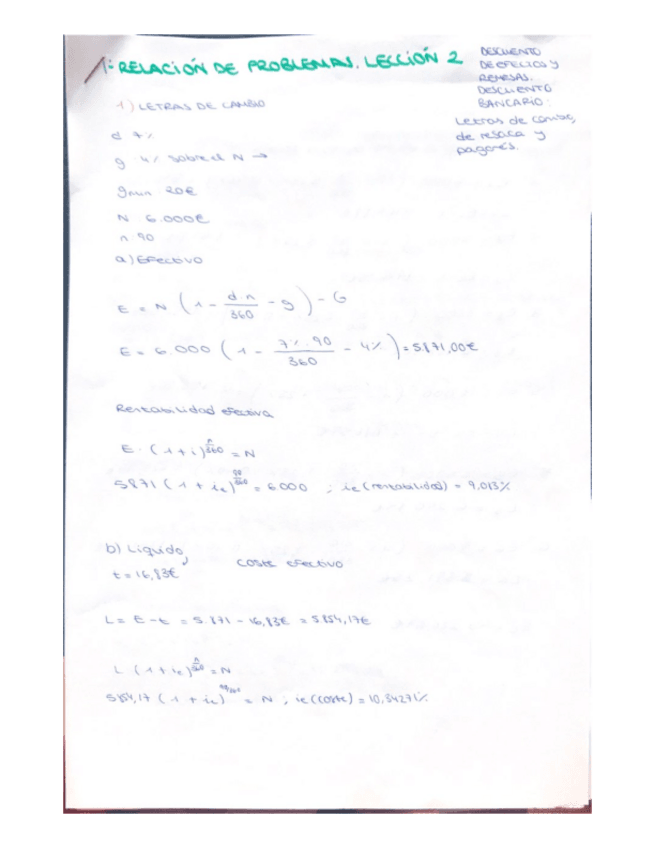 1ª RELACIÓN DE PROBLEMAS. LECCIÓN 2
DESCUENTO
DE EFECTOS Y
REMESAS.
DESCUENTO
BANCARIO:
Letras de cambio,
de resaca y
pagarés.
1) LETRAS DE CAMBIO
d 7%
g 4% sobre el N →
gmin 20€
N 6.000€
n 90
a) Efectivo
E = N (1 - d·n/360 - g) - G
E = 6.000 (1 - 7%·90/360 - 4%) = 5.871,00€
Rentabilidad efectiva
E · (1+i)^n/360 = N
5871 (1 + ie)^90/360 = 6000 ; ie (rentabilidad) = 9,013%
b) Líquido,
coste efectivo
t = 16,83€
L = E - t = 5.871 - 16,83€ = 5854,17€
L (1+ie)^n/360 = N
5854,17 (1 + ie)^90/360 = N ; ie (coste) = 10,34271%